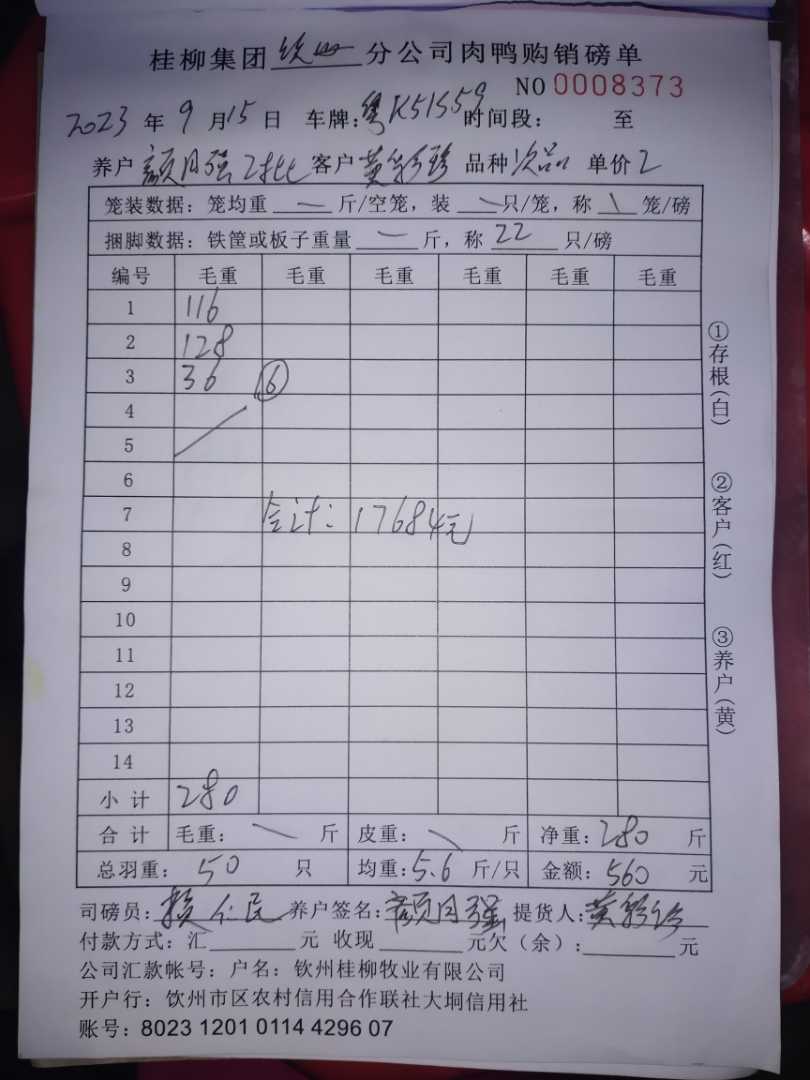 桂柳集团 钦州 分公司肉鸭购销磅单
NO 0008373
2023 年 9 月 15 日 车牌: 粤K51S59 时间段: 至
养户 颜月强2批 客户 黄彩珍 品种 次品 单价 2
笼装数据: 笼均重 斤/空笼, 装 只/笼, 称 笼/磅
捆脚数据: 铁筐或板子重量 斤, 称 22 只/磅
编号 毛重 毛重 毛重 毛重 毛重 毛重
1 116
2 128
3 36 ⑥
4
5
6
7 合计: 17684元
8
9
10
11
12
13
14
小计 280
合计 毛重: 斤 皮重: 斤 净重: 280 斤
总羽重: 50 只 均重: 5.6 斤/只 金额: 560 元
司磅员: 仁民 养户签名: 颜月强 提货人: 黄彩珍
付款方式: 汇 元 收现 元欠(余): 元
公司汇款帐号: 户名: 钦州桂柳牧业有限公司
开户行: 饮州市区农村信用合作联社大垌信用社
账号: 8023 1201 0114 4296 07
①存根(白)
②客户(红)
③养户(黄)